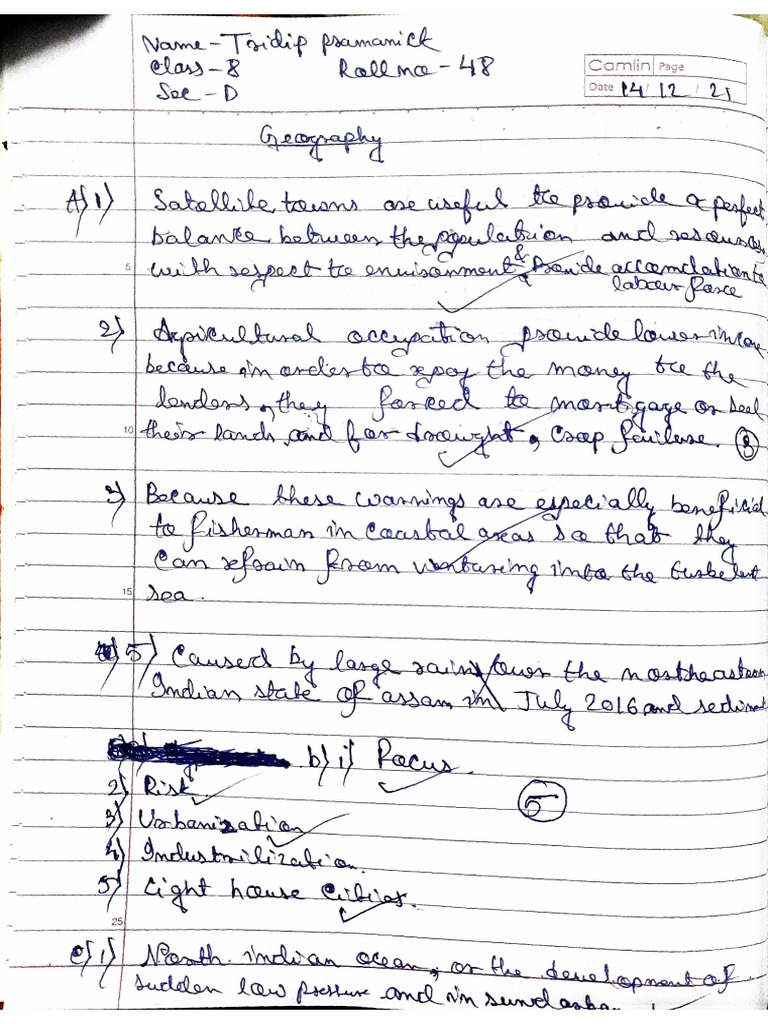 Name-Tridip pramanick
Class-8 Roll no-48
Camlin Page
Sec-D
Date 14/12/21
Geography
A) 1) Satellite towns are useful to provide a perfect
balance between the population and resources
5 with respect to environment & Provide accomdation to
labour force
2) Agricultural occupation provide lower income
because in order to repay the money to the
lenders, they forced to mortgage or seal
10 their lands, and for drought, crop failure. 3
3) Because these warnings are especially beneficial
to fisherman in coastal areas so that they
can refrain from venturing into the turbelent
15 sea.
5) Caused by large rains over the northeastern
Indian state of assam in July 2016 and sediment
b) i) Focus.
2) Risk.
5
3) Urbanization
4) Industrilization.
5) Eight house Cities.
25
c) 1) North indian ocean, or the development of
sudden low pressure and in